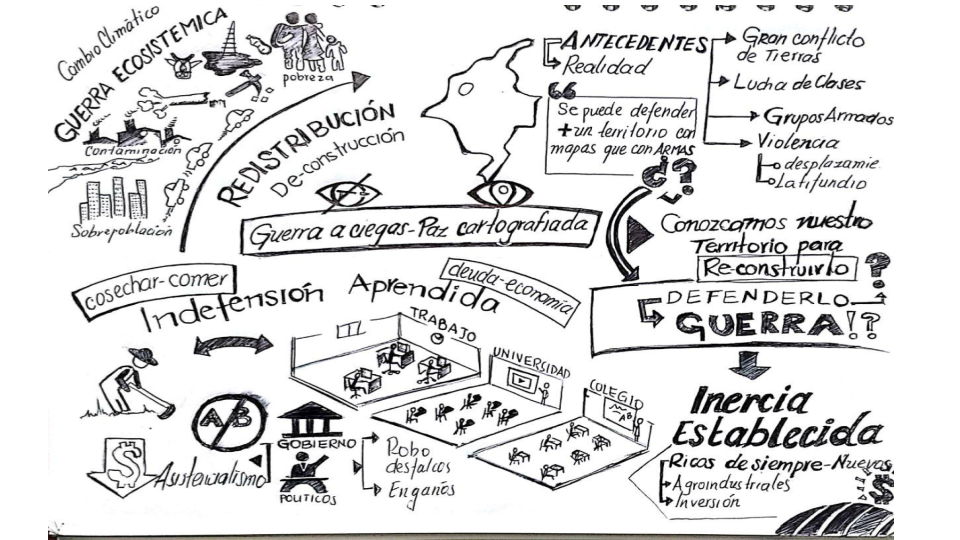 Cambio Climático
GUERRA ECOSISTEMICA
pobreza
Contaminación
Sobrepoblación
REDISTRIBUCIÓN
De-construcción
ANTECEDENTES
Realidad
Se puede defender
+ un territorio con
mapas que con ARMAS
¿?
Gran conflicto
de Tierras
Lucha de Clases
Grupos Armados
Violencia
desplazamie.
Latifundio
Guerra a ciegas-Paz cartografiada
Conozcamos nuestro
Territorio para
Re-construirlo ?
DEFENDERLO
GUERRA!?
cosechar-comer
Indefensión Aprendida
deuda-economía
TRABAJO
UNIVERSIDAD
COLEGIO
AB
A/B
$
Asistencialismo
GOBIERNO
POLITICOS
Robo
desfalcos
Engaños
Inercia
Establecida
Ricos de siempre-Nuevos
Agroindustriales
Inversión
$